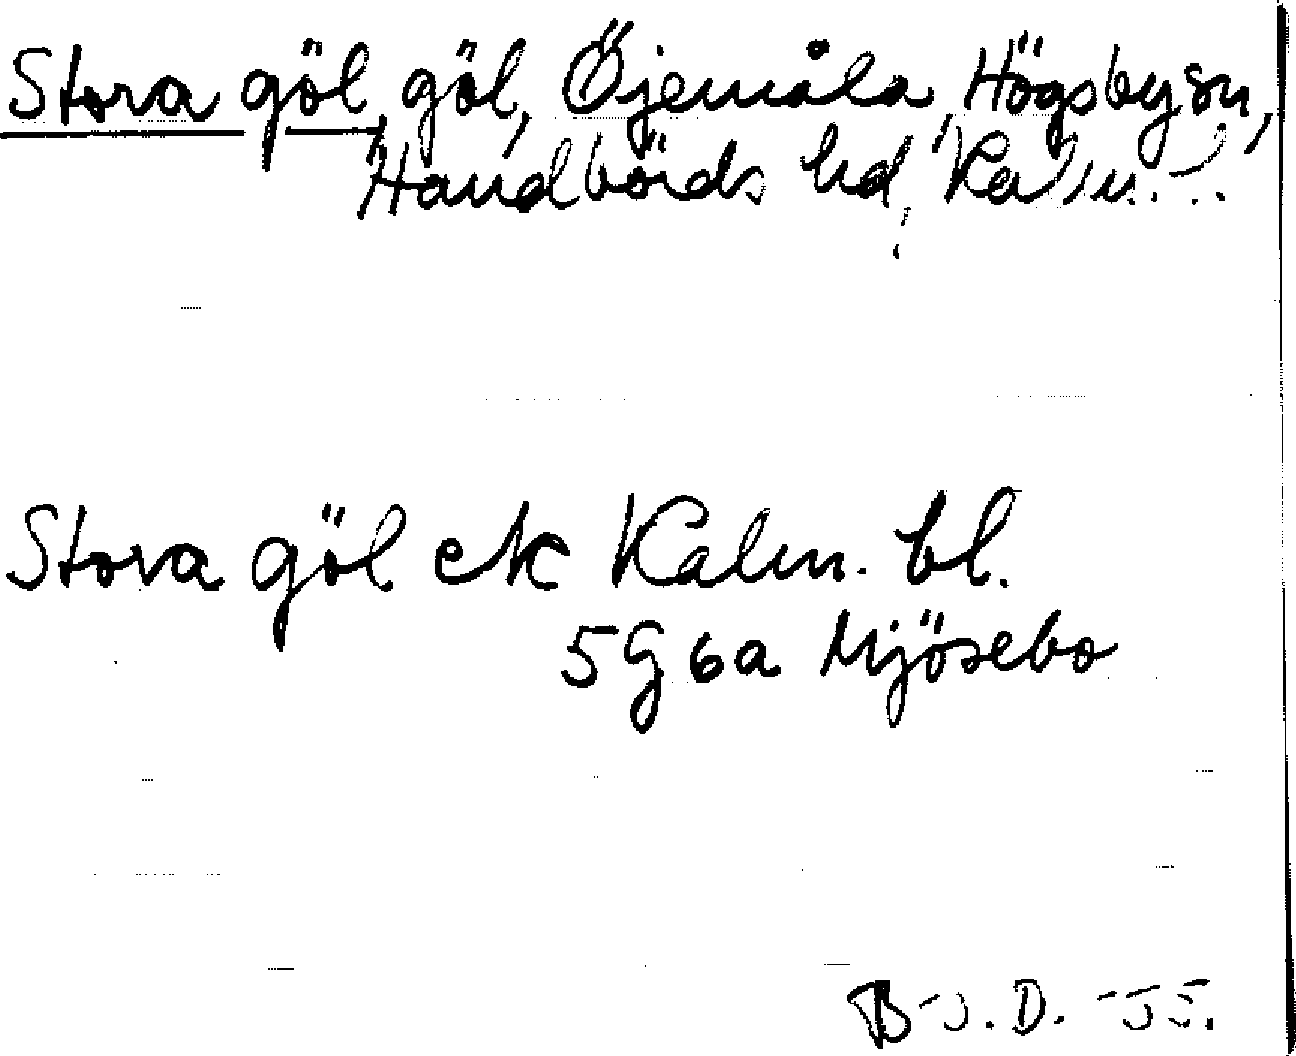 Stora göl, göl, Öjemåla, Högsby sn,
Handbörds hd, Kalm. l.
Stora göl ek Kalm. bl.
5G 6a Mjösebo
B-J. D. -55.